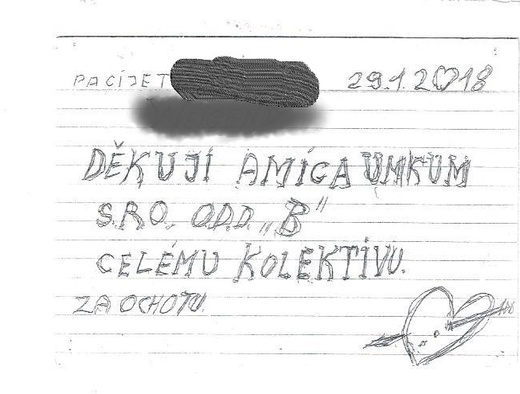 PACIJET 29.1.2018
DĚKUJI AMICAUMKUM
S.R.O. ODD „B”
CELÉMU KOLEKTIVU.
ZA OCHOTU.